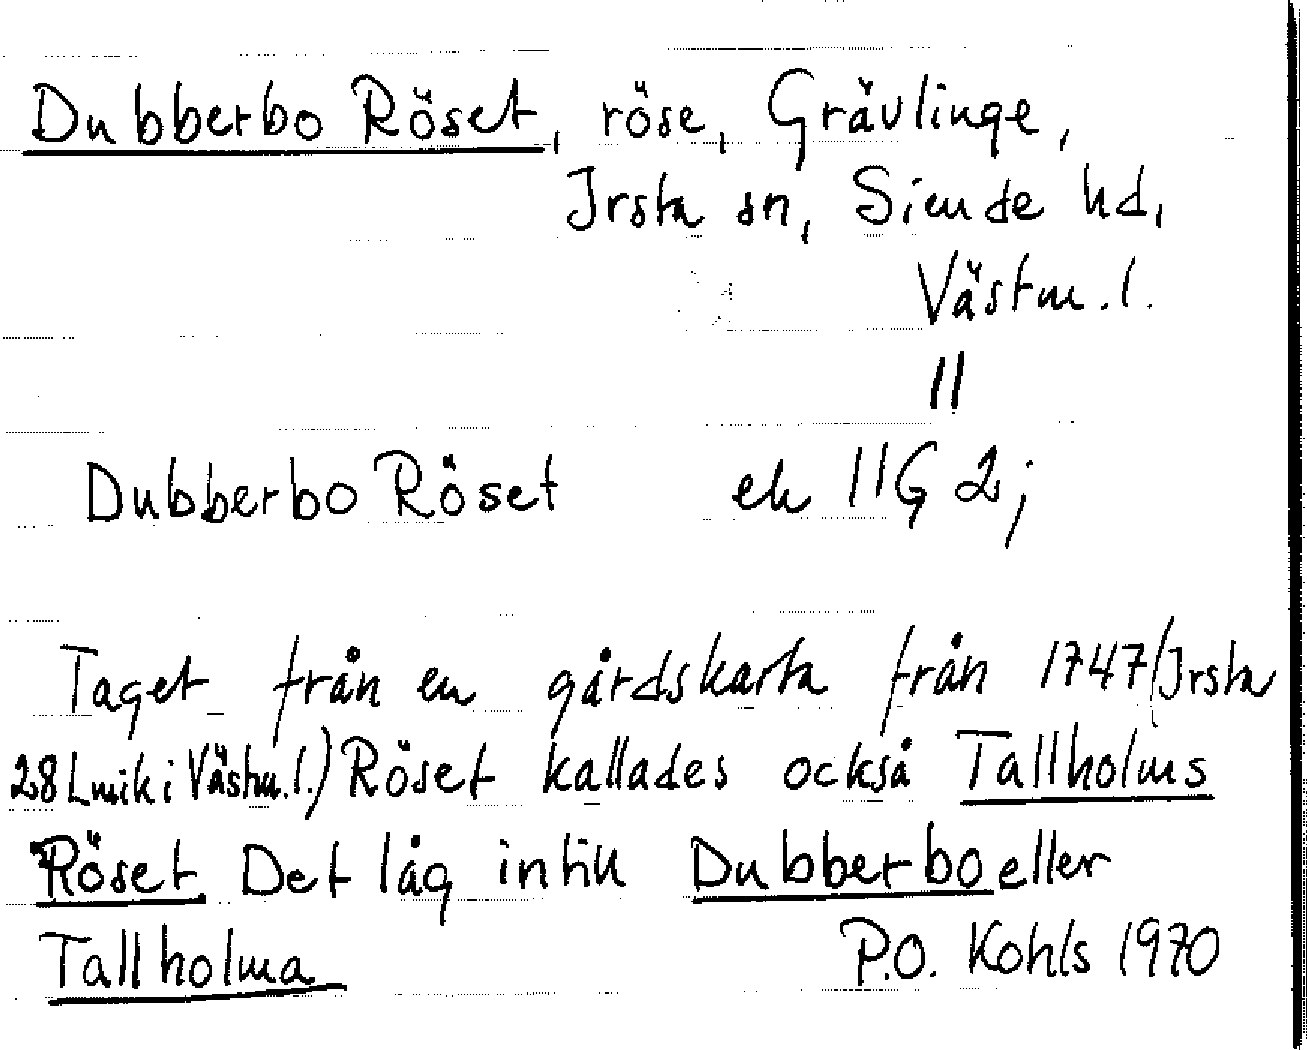 Dubberbo Röset, röse, Grävlinge,
Irsta sn, Siende hd,
Västm. l.
11
Dubberbo Röset ek 11G 2j
Taget från en gårdskarta från 1747 (Irsta
28 Lmik i Västm. l.) Röset kallades också Tallholms
Röset. Det låg intill Dubberbo eller
Tallholma P.O. Kohls 1970